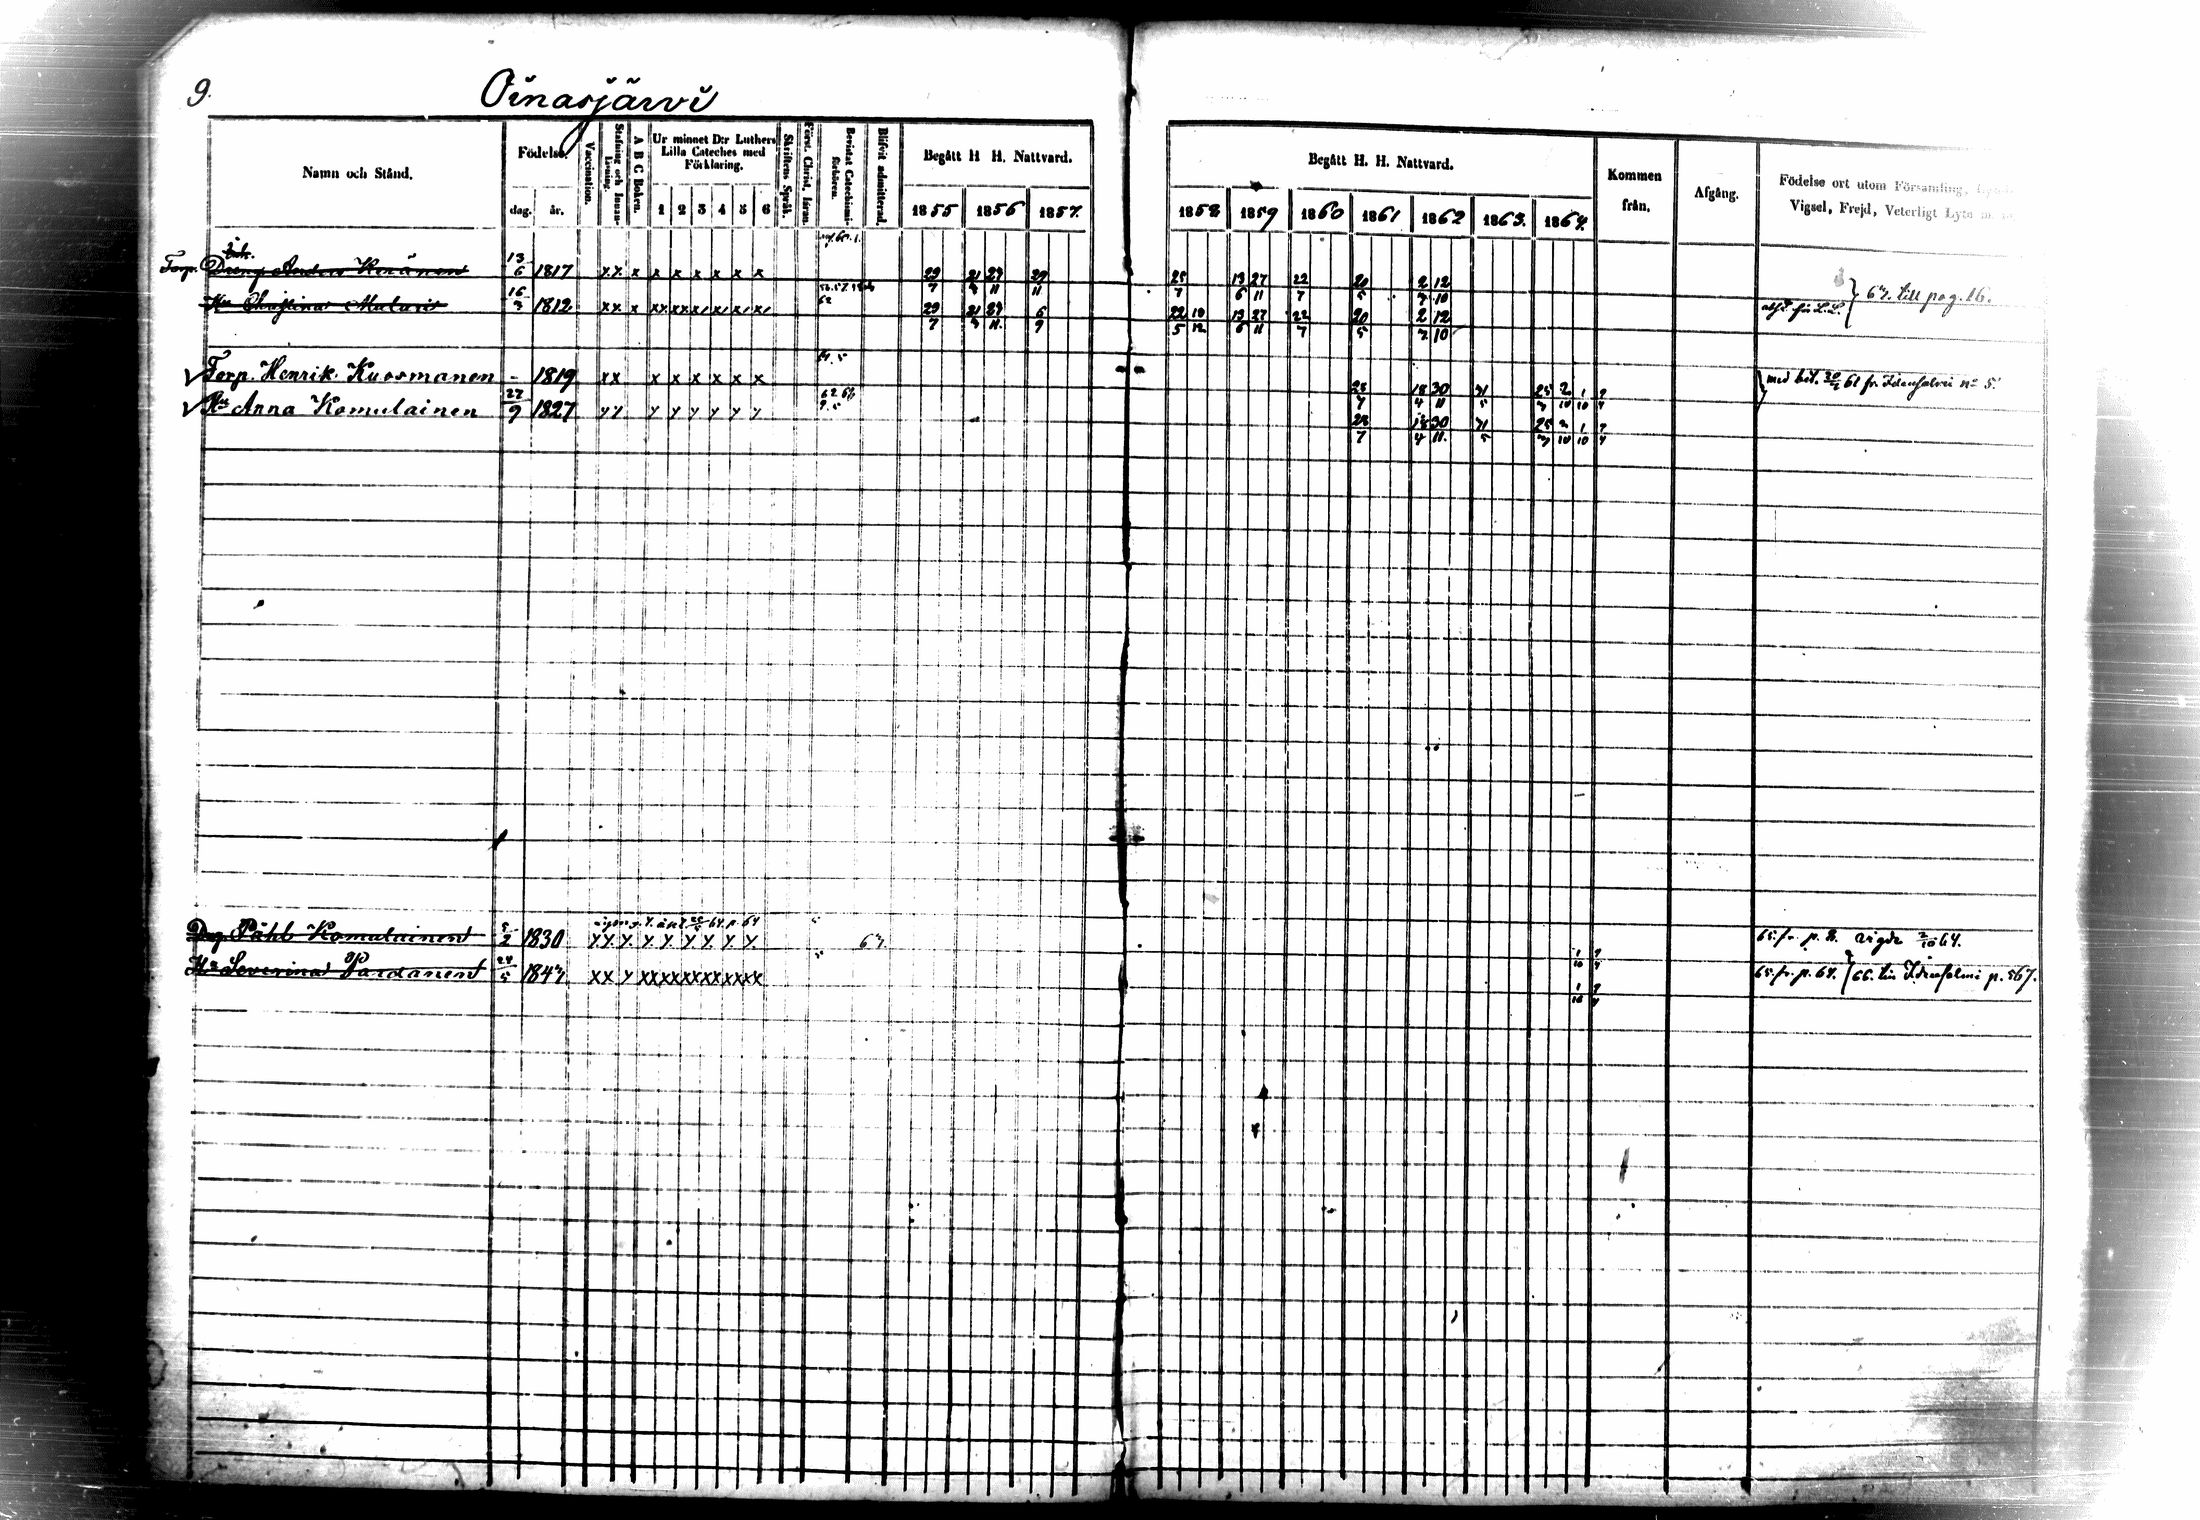 9.
Oinasjärvi
Namn och Stånd.
Födelse.
dag.
år.
Vaccination.
Stafning och Innanläsning.
A B C Boken.
Ur minnet D:r Luthers Lilla Cateches med Förklaring.
1 2 3 4 5 6
Skriftens Språk.
Först. Christ. laran
Bevistat Catechismiförhören.
Blifvit admitterad.
Begått H H. Nattvard.
1855 1856 1857.
Begått H. H. Nattvard.
1858 1859 1860 1861 1862 1863. 1864.
Kommen från.
Afgång.
Födelse ort utom Församling,
Vigsel, Frejd, Veterligt Lyte
Torp. Dreng Anders Keränen 13/6 1817 x x x x x x x x x 29/7 21 29/11 29/11 25/7 13/6 27/11 22/7 20/5 2 12/10
Hu Christina Mulari 16/3 1812 x x x 29/7 21 29/11 6/9 22/5 19/12 13/6 27/11 22/7 20/5 2 12/10
} 67. till pag. 16.
Torp. Henrik Kuosmanen - 1819 x x x x x x x x 28/7 18/4 30/11 31/5 25 2/10 1/10
Hu Anna Komulainen 27/9 1827 y y y y y y y y 28/7 18/4 30/11 31/5 25 2/10 1/10
} med bet. 20/5 61 fr. Idensalmi no 5.
Drg Påhl Komulainen 5/2 1830 y y y y y y y y y 67. 1/10 65. fr. p. 2. vigde 2/10 64.
Hu Severina Pardanen 24/5 1847. x x y xx xx xx xx xx xx 1/10 65. fr. p. 64. } 66. till Idensalmi p. 567.